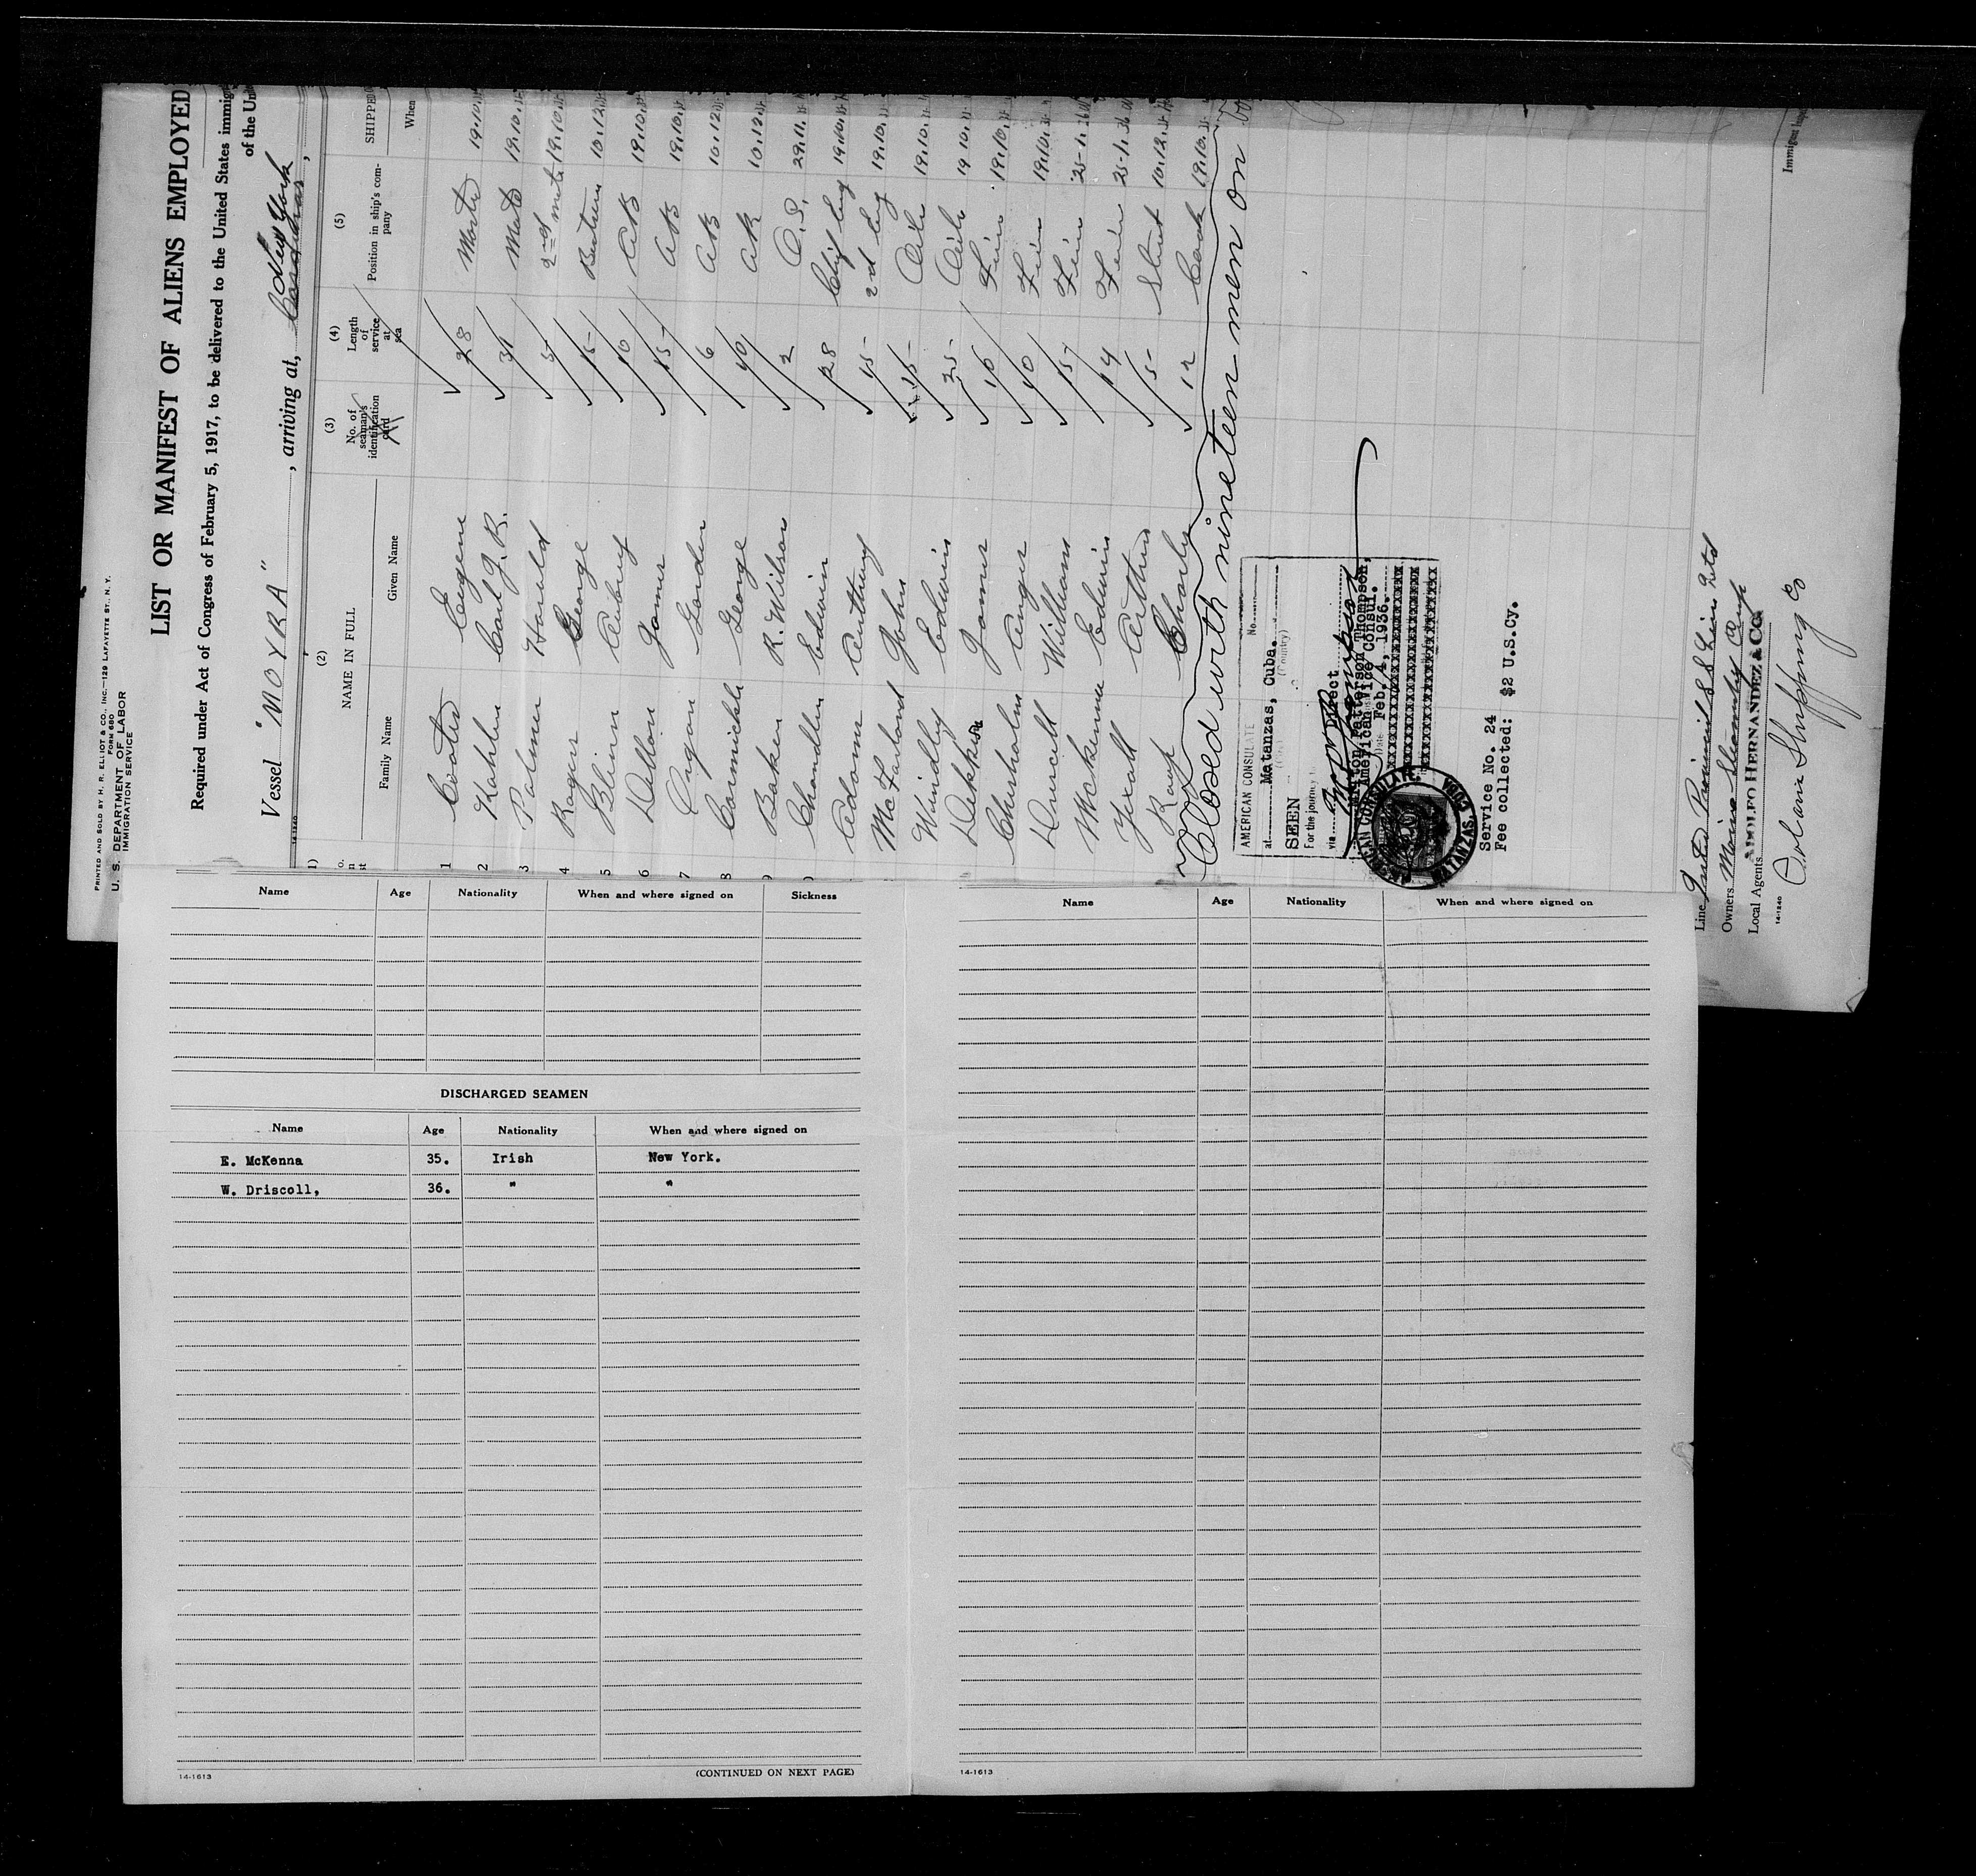 PRINTED AND SOLD BY H. R. ELLIOT & CO., INC.—129 LAFAYETTE ST., N. Y.
FORM 680
U. S. DEPARTMENT OF LABOR
IMMIGRATION SERVICE
LIST OR MANIFEST OF ALIENS EMPLOYED
Required under Act of Congress of February 5, 1917, to be delivered to the United States immig
of the Uni
Vessel "MOYRA", arriving at, New York
(2) (3) (4) (5)
NAME IN FULL
Family Name Given Name
No. of seaman's identification card
Length of service at sea
Position in ship's company
SHIPPED
When
1 Coates Eugene 28 Master 19.10.
2 Kahlen Carl J. R. 31 Mate 19.10.
3 Palmer Harold 5 2nd mate 19.10.
4 Rogers George 15 10.12.
5 Blinn Aubrey 10 AB 19.10.
6 Dillon James 15 AB 19.10.
7 Gordon 6 AB 10.12.
8 Carmichael George 10 AB 10.12.
Baker R. Wilson 2 O.S. 29.11.
Chandler Edwin 28 Chief Eng 19.10.
Adams Anthony 15 2d Eng 19.10.
McFarland John 15 19.10.
Windley Edwin 25 19.10.
James 16 19.10.
Chisholm Angus 10 19.10.
Driscoll William 15 25.1.36
McKenna Edwin 14 25.1.36
Arthur 5 10.12.
Charles 12 Cook 19.10.
Closed with nineteen men on bo
AMERICAN CONSULATE
No.
at Matanzas, Cuba.
(Country)
SEEN
For the journey to
via Direct
Milton Patterson Thompson,
American Vice Consul.
Date Feb. 4, 1936.
AMERICAN CONSULATE
MATANZAS, CUBA
Service No. 24
Fee collected: $2 U.S.Cy.
Line
Owners
Local Agents ADOLFO HERNANDEZ & CO.
Shipping Co
14-1240
Immigrant Inspe
Name Age Nationality When and where signed on Sickness
DISCHARGED SEAMEN
Name Age Nationality When and where signed on
E. McKenna 35. Irish New York.
W. Driscoll, 36. " "
14-1613
(CONTINUED ON NEXT PAGE)
Name Age Nationality When and where signed on
14-1613